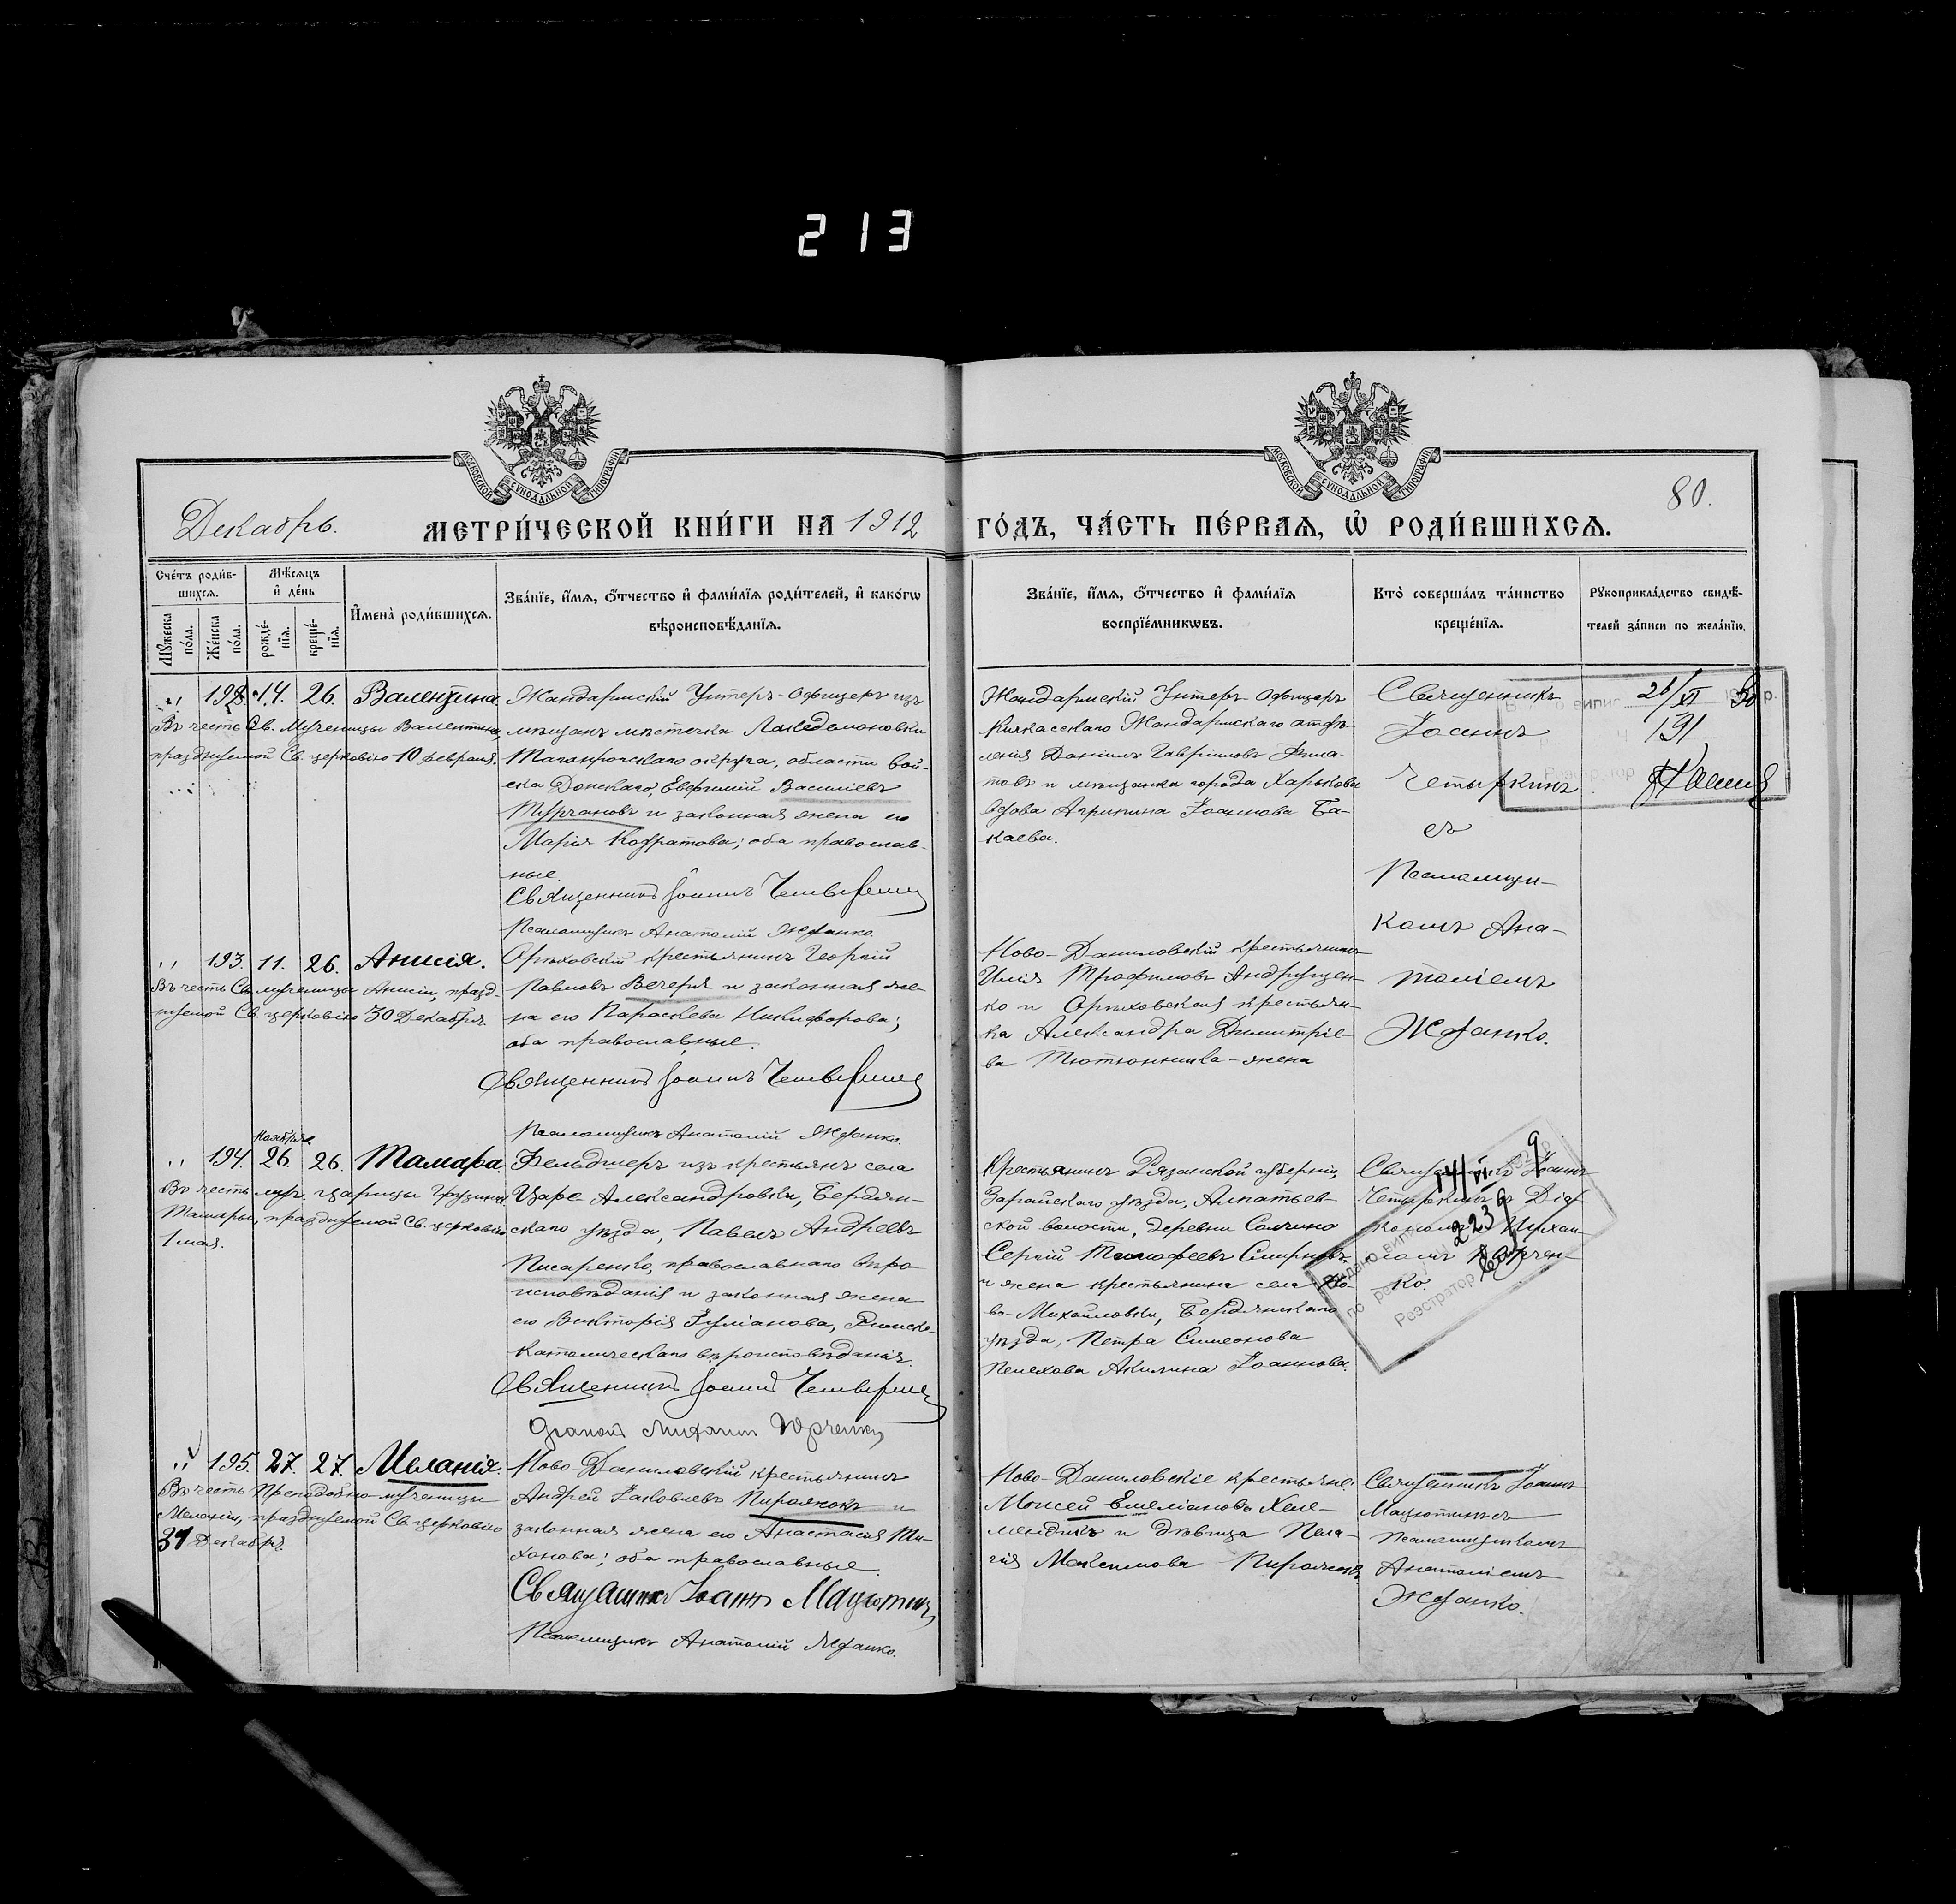 213
МОСКОВСКОЙ СУНОДАЛЬНОЙ ТИПОГРАФІИ
МОСКОВСКОЙ СУНОДАЛЬНОЙ ТИПОГРАФІИ
80.
Декабрь.
МЕТРИ́ЧЕСКОЙ КНИ́ГИ НА 1912 ГО́ДЪ, ЧА́СТЬ ПЕ́РВАѦ, Ѡ҆ РОДИ́ВШИХСѦ.
Сче́тъ роди́в-
шихсѧ.
Мꙋ́жеска по́ла.
Же́нска по́ла.
Мѣ́сѧцъ
и҆ де́нь
рожде́-нїѧ.
креще́-нїѧ.
И҆мена̀ роди́вшихсѧ.
Зва́нїе, и҆́мѧ, ѻ҆́тчество и҆ фами́лїѧ роди́телей, и҆ како́гѡ
вѣроисповѣ́данїѧ.
Зва́нїе, и҆́мѧ, ѻ҆́тчество и҆ фами́лїѧ
воспрїе́мникѡвъ.
Кто̀ соверша́лъ та́инство
креще́нїѧ.
Рꙋкоприкла́дство свидѣ́-
телей за́писи по жела́нїю.
,, 192. 14. 26. Валентина.
Въ честь Св. Мученицы Валентины,
празднуемой Св. церковію 10 февраля.
Жандармскій Унтеръ-Офицеръ изъ
мѣщанъ мѣстечка Лакедемоновки
Таганрогскаго округа, области вой-
ска Донскаго, Евфимій Василіевъ
Турчановъ и законная жена его
Марія Кодратова; оба православ-
ные.
Священникъ Іоаннъ
Псаломщикъ Анатолій Жданко.
Жандармскій Унтеръ-Офицеръ
Жандармскаго отдѣ-
ленія Даніилъ Гавріиловъ
и мѣщанка города Харькова
Вдова Агрипина Іоаннова Ба-
каева.
Священникъ
Іоаннъ
Четыркинъ
съ
Псаломщи-
комъ Ана-
толіемъ
Жданко.
26/XI 30 р.
191
,, 193. 11. 26. Анисія.
Въ честь Св. мученицы Анисіи, празд-
нуемой Св. церковію 30 Декабря.
Орѣховскій крестьянинъ Георгій
Павловъ Вечеря и законная же-
на его Параскева Никифорова;
оба православные.
Священникъ Іоаннъ
Псаломщикъ Анатолій Жданко.
Ново-Даниловскій крестьянинъ
Илія Трофимовъ Андрущен-
ко и Орѣховская крестьян-
ка Александра Димитріе-
ва Тютюнника-жена
Ноября.
,, 194. 26. 26. Тамара.
Въ честь мук. царицы Грузинск.
Тамары, празднуемой Св. церковію
1 мая.
Фельдшеръ изъ крестьянъ села
Царе-Александровки, Бердян-
скаго уѣзда, Павелъ Андреевъ
Писаренко, православнаго вѣро-
исповѣданія и законная жена
его Викторія Іуліанова, Римско-
Католическаго вѣроисповѣданія.
Священникъ Іоаннъ
Діаконъ Михаилъ Юрченко
Крестьянинъ Рязанской губерніи,
Зарайскаго уѣзда, Алпатьев-
ской волости, деревни
Сергій Тимофеевъ Смирновъ
и жена крестьянина села Но-
во-Михайловки, Бердянскаго
уѣзда, Петра Симеонова
Пелехова Акилина Іоаннова.
Священникъ Іоаннъ
Четыркинъ съ Діа-
кономъ Михаи-
ломъ Юрчен-
ко.
14/VI
2239
Видано випис
по реєстру
Реєстратор
,, 195. 27. 27. Меланія.
Въ честь Преподобно-мученицы
Меланіи, празднуемой Св. церковію
31 Декабря.
Ново-Даниловскій крестьянинъ
Андрей Іаковлевъ Пироженко и
законная жена его Анастасія Ти-
хонова; оба православные.
Священникъ Іоаннъ Мацютинъ
Псаломщикъ Анатолій Жданко.
Ново-Даниловскіе крестьяне:
Моисей Емеліановъ Келе-
мендикъ и дѣвица Пела-
гія Максимова
Священникъ Іоаннъ
Мацютинъ съ
псаломщикомъ
Анатоліемъ
Жданко.